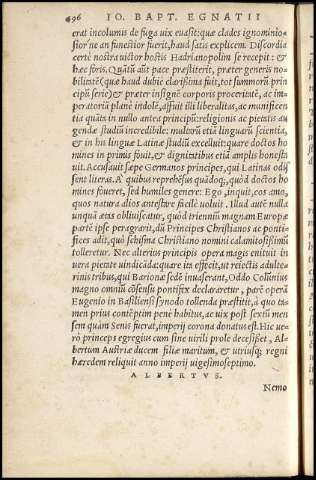 496 IO. BAPT. EGNATII
erat incolumis de fuga uix euasit: quæ clades ignominio-
sior ne an funestior fuerit, haud satis explicem. Discordia
certè nostra uictor hostis Hadrianopolin se recepit: &
hæc foris. Quãtũ aũt pace præstiterit, præter generis no-
bilitatẽ (quæ haud dubiè clarissima fuit, tot summorũ prin
cipũ serie) & præter insignẽ corporis proceritatẽ, ac im-
peratoriã planè indolẽ, affuit illi liberalitas, ac munificen
tia quãta in nullo antea principũ: religionis ac pietatis au
gendæ studiũ incredibile: multorũ etiã linguarũ scientia,
& in his linguæ Latinæ studiũ excelluit: quare doctos ho
mines in primis fouit, & dignitatibus etiã amplis honesta
uit. Accusauit sæpe Germanos principes, qui Latinas odis
sent literas. A quibus reprehẽsus quãdoq;, quòd doctos ho
mines foueret, sed humiles genere: Ego, inquit, eos amo,
quos natura alios antestare facilè uoluit. Illud autẽ nulla
unquã ætas obliuiscatur, quòd triennũ magnam Europæ
partẽ ipse peragrarit, dũ Principes Christianos ac ponti-
fices adit, quo schisma Christiano nomini calamitosissimũ
tolleretur. Nec alterius principis opera magis enituit in
uera pietate uindicãda: quare ita effecit, ut reiectis adulte
rinis tribus, qui Barionæ sedẽ inuaserant, Oddo Colũnius
magno omniũ cõsensu pontifix declararetur, parẽ operã
Eugenio in Basiliensi synodo tollenda præstitit, à quo ta
men prius contẽptim penè habitus, ac uix post sextũ men
sem quàm Senis fuerat, imperij corona donatus est. Hic ue
rò princeps egregius cum sine uirili prole decessisset, Al-
bertum Austriæ ducem filiæ maritum, & utriusq; regni
hæredem reliquit anno imperij uigesimoseptimo.
ALBERTVS.
Nemo